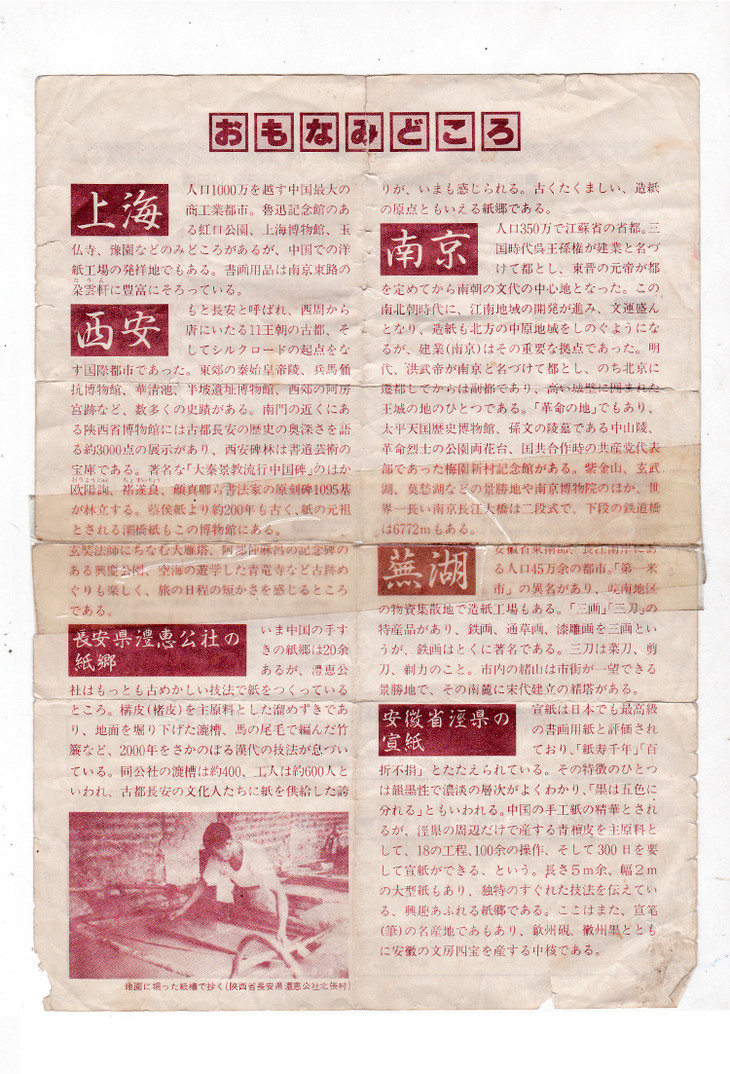 おもなみどころ
上海
人口1000万を越す中国最大の
商工業都市。魯迅記念館のあ
る虹口公園、上海博物館、玉
仏寺、豫園などのみどころがあるが、中国での洋
紙工場の発祥地でもある。書画用品は南京東路の
朶雲軒に豊富にそろっている。
西安
もと長安と呼ばれ、西周から
唐にいたる11王朝の古都、そ
してシルクロードの起点をな
す国際都市であった。東郊の秦始皇帝陵、兵馬俑
抗博物館、華清池、半坡遺址博物館、西郊の阿房
宮跡など、数多くの史蹟がある。南門の近くにあ
る陜西省博物館には古都長安の歴史の奥深さを語
る約3000点の展示があり、西安碑林は書道芸術の
宝庫である。著名な「大秦景教流行中国碑」のほか
欧陽詢、褚遂良、顔真卿ら書法家の原刻碑1095基
が林立する。蔡侯紙より約200年も古く、紙の元祖
とされる灞橋紙もこの博物館にある。
玄奘法師にちなむ大雁塔、阿部仲麻呂の記念碑の
ある興慶公園、空海の遊学した青竜寺など古跡め
ぐりも楽しく、旅の日程の短かさを感じるところ
である。
長安県灃恵公社の
紙郷
いま中国の手す
きの紙郷は20余
あるが、灃恵公
社はもっとも古めかしい技法で紙をつくっている
ところ。構皮(楮皮)を主原料とした溜めずきであ
り、地面を堀り下げた漉槽、馬の尾毛で編んだ竹
簾など、2000年をさかのぼる漢代の技法が息づい
ている。同公社の漉槽は約400、工人は約600人と
いわれ、古都長安の文化人たちに紙を供給した誇
地面に堀った紙槽で抄く(陜西省長安県灃恵公社北張村)
りが、いまも感じられる。古くたくましい、造紙
の原点ともいえる紙郷である。
南京
人口350万で江蘇省の省都。三
国時代呉王孫権が建業と名づ
けて都とし、東晋の元帝が都
を定めてから南朝の文代の中心地となった。この
南北朝時代に、江南地域の開発が進み、文運盛ん
となり、造紙も北方の中原地域をしのぐようにな
るが、建業(南京)はその重要な拠点であった。明
代、洪武帝が南京と名づけて都とし、のち北京に
遷都してからは副都であり、高い城壁に囲まれた
王城の地のひとつである。「革命の地」でもあり、
太平天国歴史博物館、孫文の陵墓である中山陵、
革命烈士の公園両花台、国共合作時の共産党代表
部であった梅園新村記念館がある。紫金山、玄武
湖、莫愁湖などの景勝地や南京博物院のほか、世
界一長い南京長江大橋は二段式で、下段の鉄道橋
は6772mもある。
蕪湖
安徽省東南部、長江南岸にあ
る人口45万余の都市。「第一米
市」の異名があり、皖南地区
の物資集散地で造紙工場もある。「三画」「三刀」の
特産品があり、鉄画、通草画、漆雕画を三画とい
うが、鉄画はとくに著名である。三刀は菜刀、剪
刀、剃力のこと。市内の緒山は市街が一望できる
景勝地で、その南麓に宋代建立の緒塔がある。
安徽省涇県の
宣紙
宣紙は日本でも最高級
の書画用紙と評価され
ており、「紙寿千年」「百
折不損」とたたえられている。その特徴のひとつ
は韻墨性で濃淡の層次がよくわかり、「墨は五色に
分れる」ともいわれる。中国の手工紙の精華とされ
るが、涇県の周辺だけで産する青檀皮を主原料と
して、18の工程、100余の操作、そして300日を要
して宣紙ができる、という。長さ5m余、幅2m
の大型紙もあり、独特のすぐれた技法を伝えてい
る、興趣あふれる紙郷である。ここはまた、宣笔
(筆)の名産地であもあり、歙州硯、徽州黒ととも
に安徽の文房四宝を産する中核である。